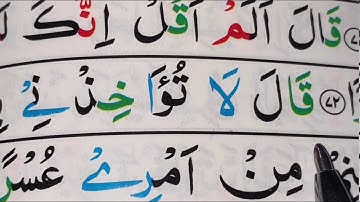 قَالَ اَلَمْ اَقُلْ اِنَّكَ
﴿٧٢﴾ قَالَ لَا تُؤَاخِذْنِيْ
مِنْ اَمْرِيْ عُسْرًا